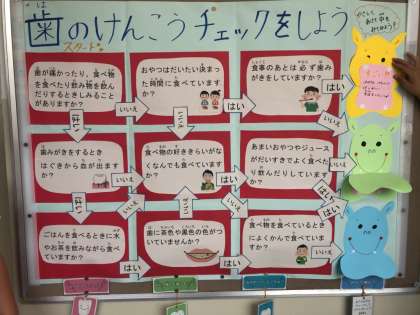 歯のけんこうチェックをしよう
は
スタート
歯が痛かったり、食べ物
を食べたり飲み物を飲ん
だりするとしみることが
ありますか?
おやつはだいたい決まっ
た時間に食べています
か?
食事のあとは必ず歯み
がきをしていますか?
いいえ
はい
はい
はい
いいえ
いいえ
歯みがきをするとき
はぐきから血が出ます
か?
食べ物の好ききらいがな
くなんでも食べています
か?
あまいおやつやジュース
がだいすきでよく食べた
り飲んだりしています
か?
いいえ
はい
いいえ
はい
はい
いいえ
いいえ
はい
ごはんを食べるときに水
やお茶を飲みながら食べ
ていますか?
歯に茶色や黒色の色がつ
いていませんか?
食べ物を食べているとき
によくかんで食べていま
すか?
はい
いいえ
はい